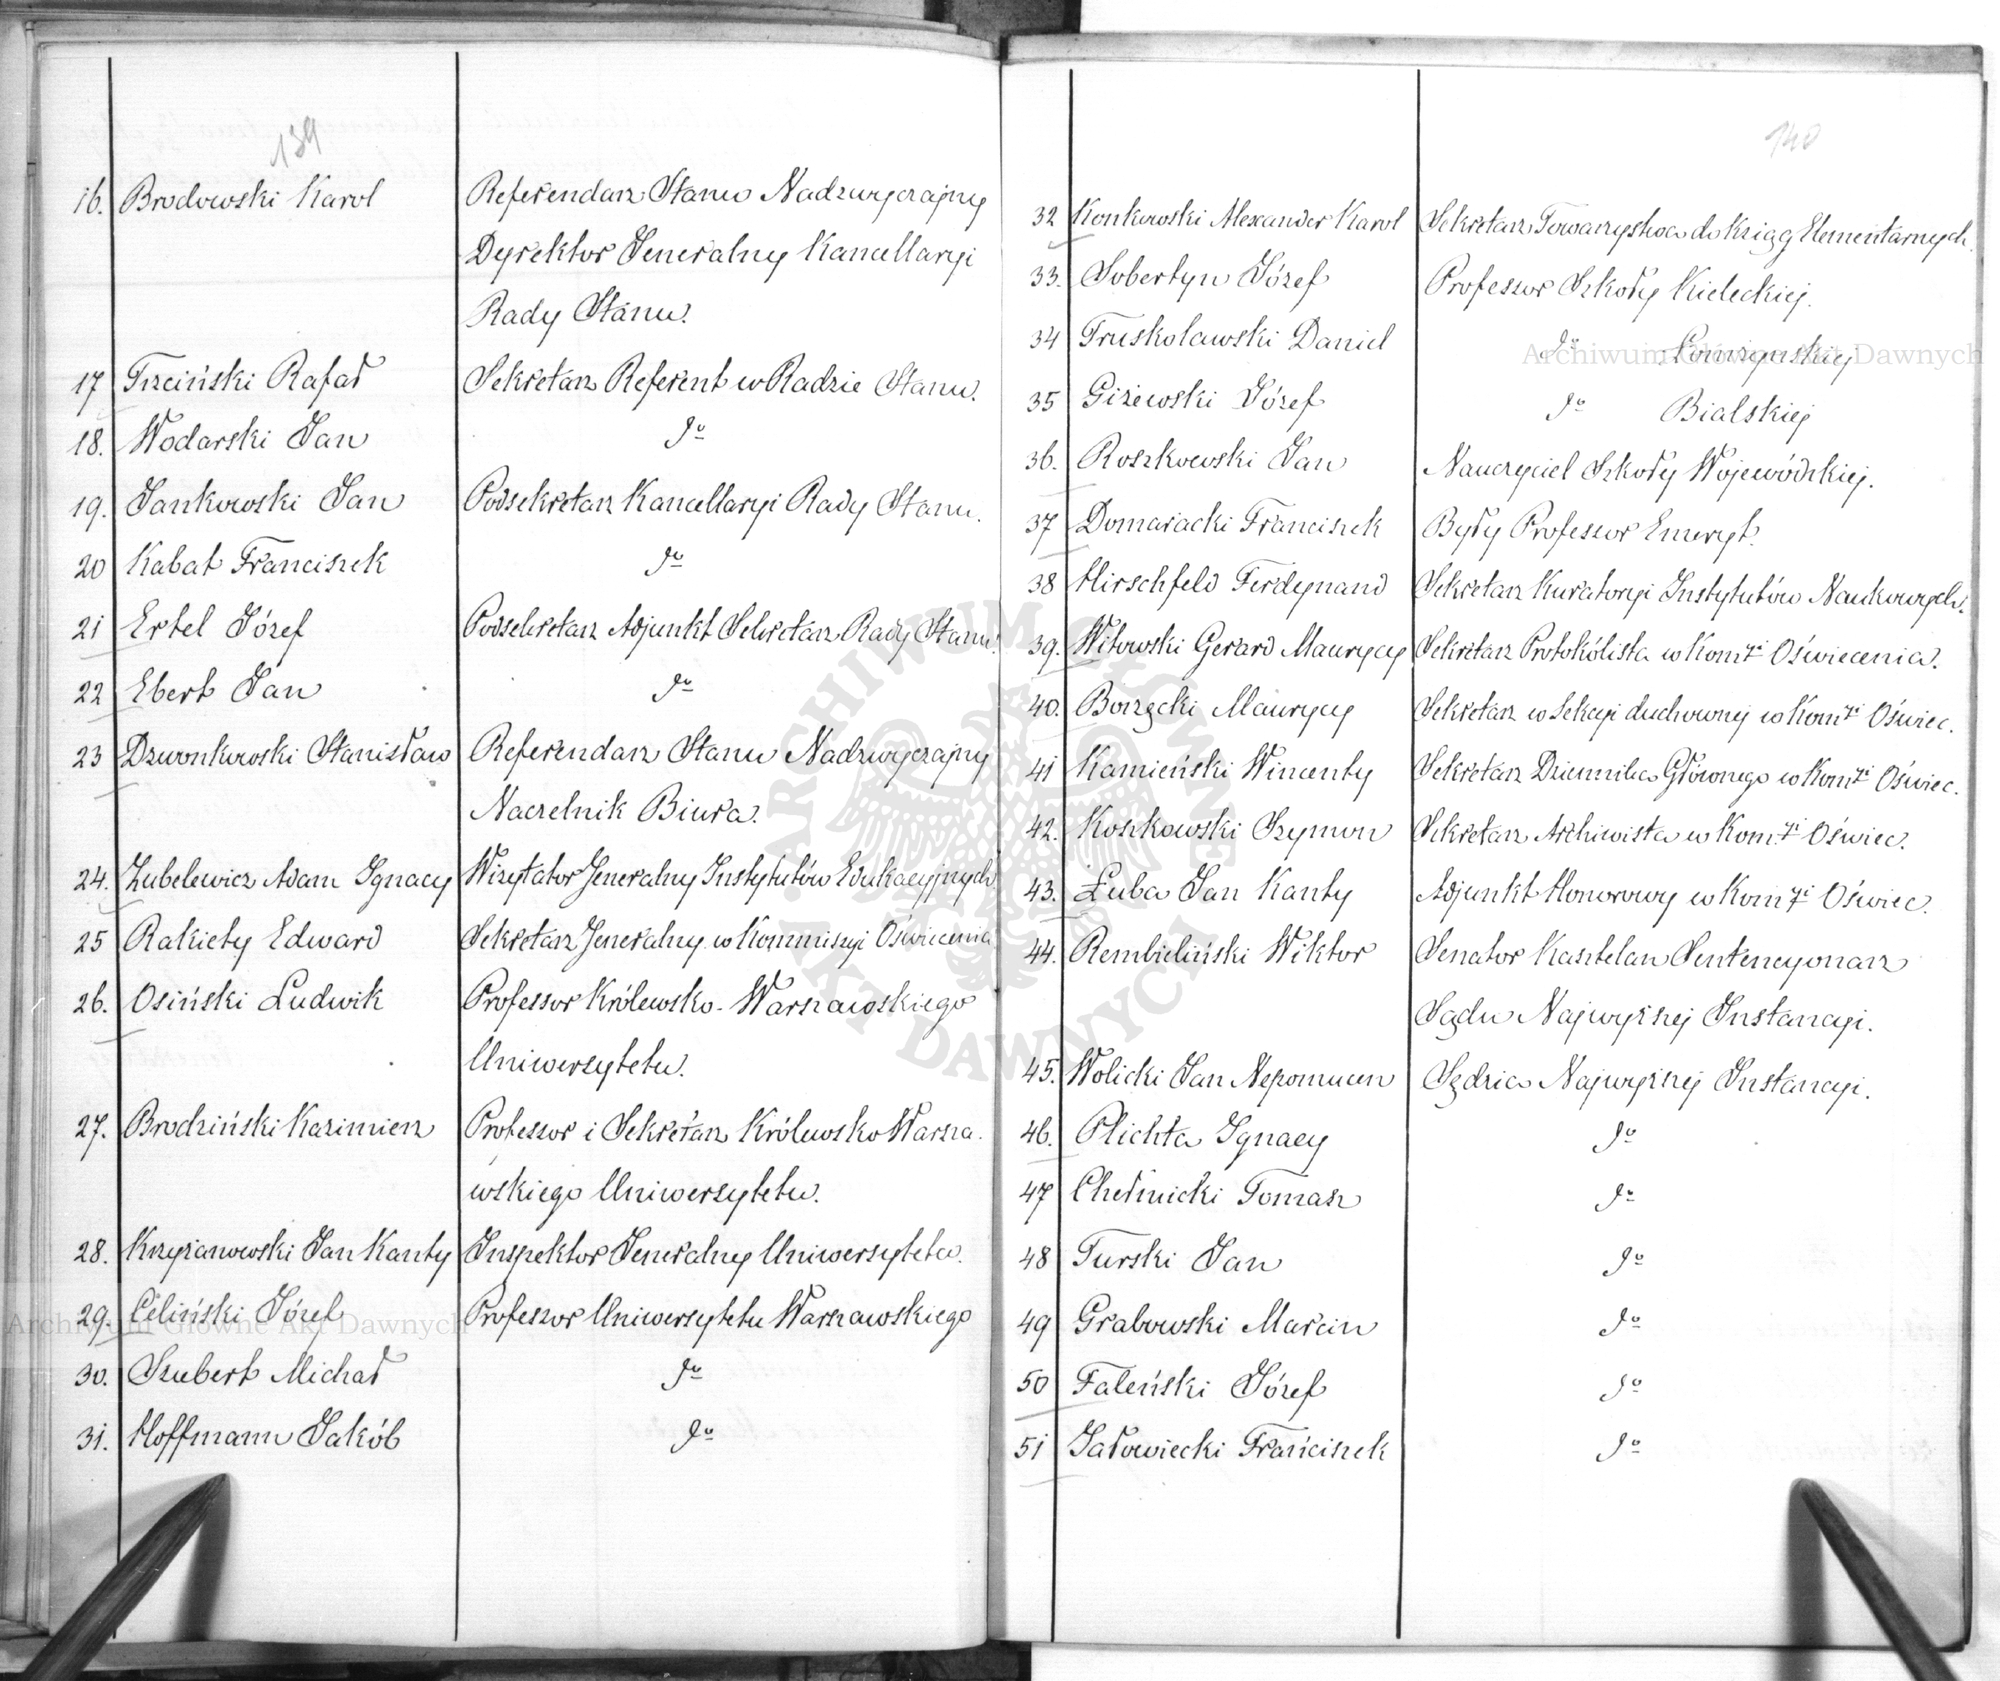 139
16. Brodowski Karol Referendarz Stanu Nadzwyczajny
Dyrektor Jeneralny Kancellaryi
Rady Stanu.
17 Trzciński Rafał Sekretarz Referent w Radzie Stanu.
18. Wodarski Jan do
19. Jankowski Jan Podsekretarz Kancellaryi Rady Stanu.
20 Kabat Franciszek do
21 Ertel Józef Podsekretarz Adjunkt Sekretarz Rady Stanu.
22 Ebert Jan do
23 Dzwonkowski Stanisław Referendarz Stanu Nadzwyczajny
Naczelnik Biura.
24. Zubelewicz Adam Ignacy Wizytator Jeneralny Instytutów Edukacyjnych
25 Rakiety Edward Sekretarz Jeneralny w Kommiszyi Oświecenia
26. Osiński Ludwik Professor Królewsko-Warszawskiego
Uniwersytetu.
27. Brodziński Kazimierz Professor i Sekretarz Królewsko Warsza-
wskiego Uniwersytetu.
28. Krzyżanowski Jan Kanty Inspektor Jeneralny Uniwersytetu.
29. Celiński Józef Professor Uniwersytetu Warszawskiego
30. Szubert Michał do
31. Hoffmann Jakób do
140
32 Konkowski Alexander Karol Sekretarz Towarzystwa do Ksiąg Elementarnych.
33. Sobertyn Józef Professor Szkoły Kieleckiej.
34 Truskolawski Daniel do Łomzynskiej
35 Giżewski Józef do Bialskiej
36. Roszkowski Jan Nauczyciel Szkoły Wojewódzkiej.
37 Domaracki Franciszek Były Professor Emeryt.
38 Hirschfeld Ferdynand Sekretarz Kuratoryi Instytutów Naukowych.
39. Witowski Gerard Maurycy Sekretarz Protokólista w Kommyi Oświecenia.
40. Borzęcki Maurycy Sekretarz w Sekcyi duchownej w Kommyi Oświec.
41 Kamieński Wincenty Sekretarz Dziennika Głównego w Kommyi Oświec.
42. Koszkowski Szymon Sekretarz Archiwista w Kommyi Oświec.
43. Łuba Jan Kanty Adjunkt Honorowy w Kommyi Oświec.
44. Rembieliński Wiktor Senator Kasztelan Sentencyonarz
Sądu Najwyższej Instancyi.
45. Wolicki Jan Nepomucen Sędzia Najwyższej Instancyi.
46. Plichta Ignacy do
47 Chełmicki Tomasz do
48 Turski Jan do
49 Grabowski Marcin do
50 Faleński Józef do
51 Jałowiecki Franciszek do
Archiwum Główne Akt Dawnych
Archiwum Główne Akt Dawnych
ARCHIWUM GŁÓWNE AKT DAWNYCH